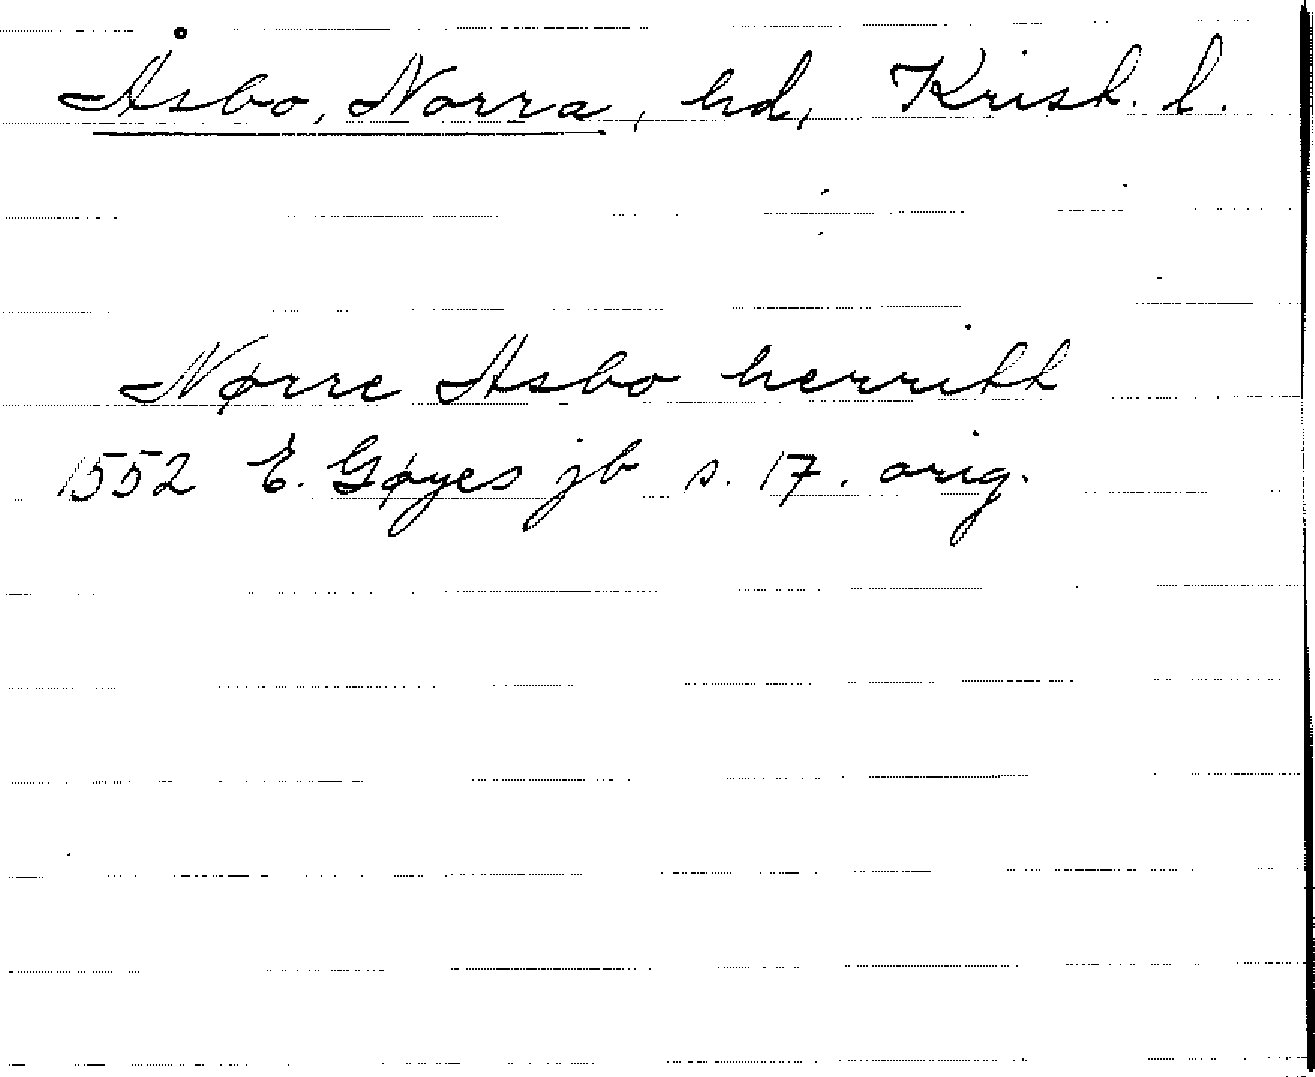 Åsbo, Norra, hd, Krist. l.
Nørre Asbo herritt
1552 E. Gøyes jb s. 17. orig.